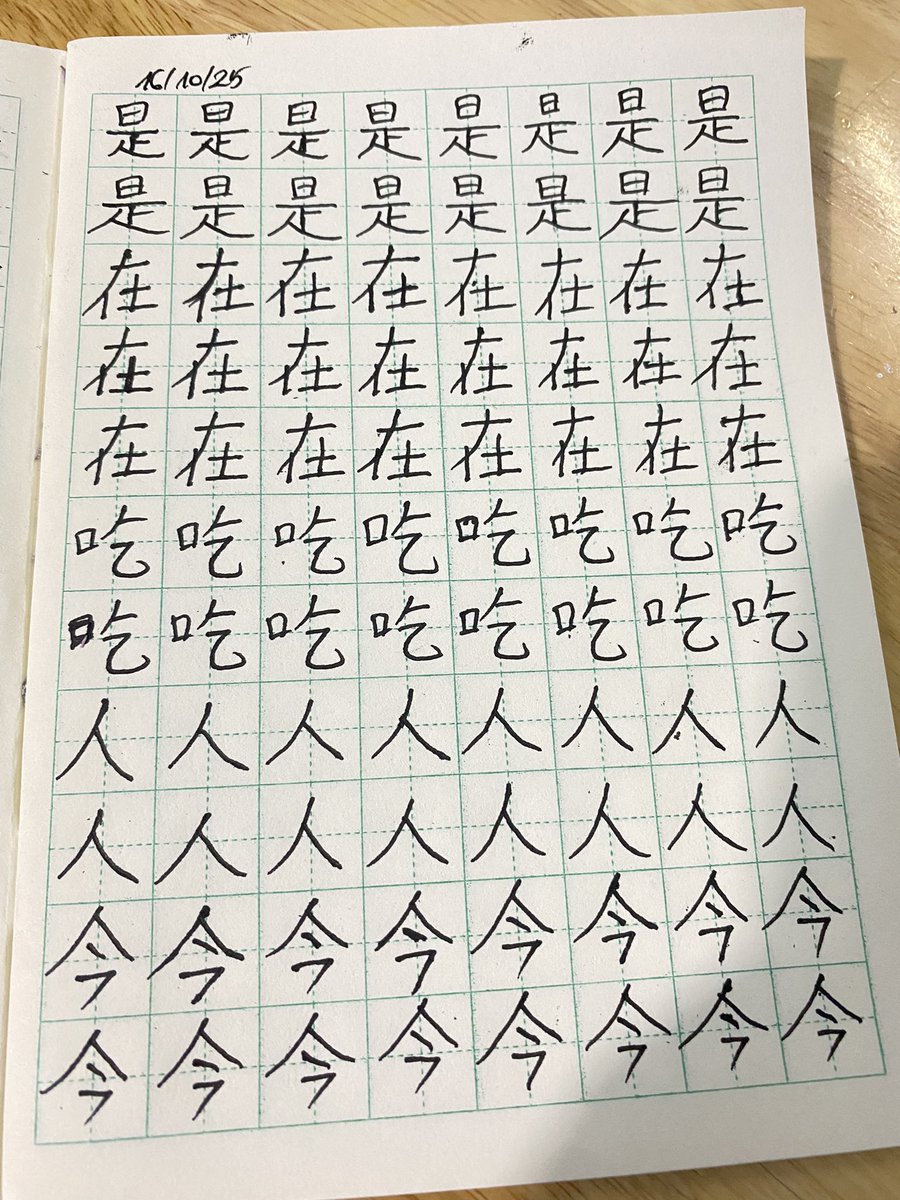 16/10/25
是是是是是是是是
是是是是是是是是
在在在在在在在在
在在在在在在在在
在在在在在在在在
吃吃吃吃吃吃吃吃
吃吃吃吃吃吃吃吃
人人人人人人人人
人人人人人人人人
今今今今今今今今
今今今今今今今今